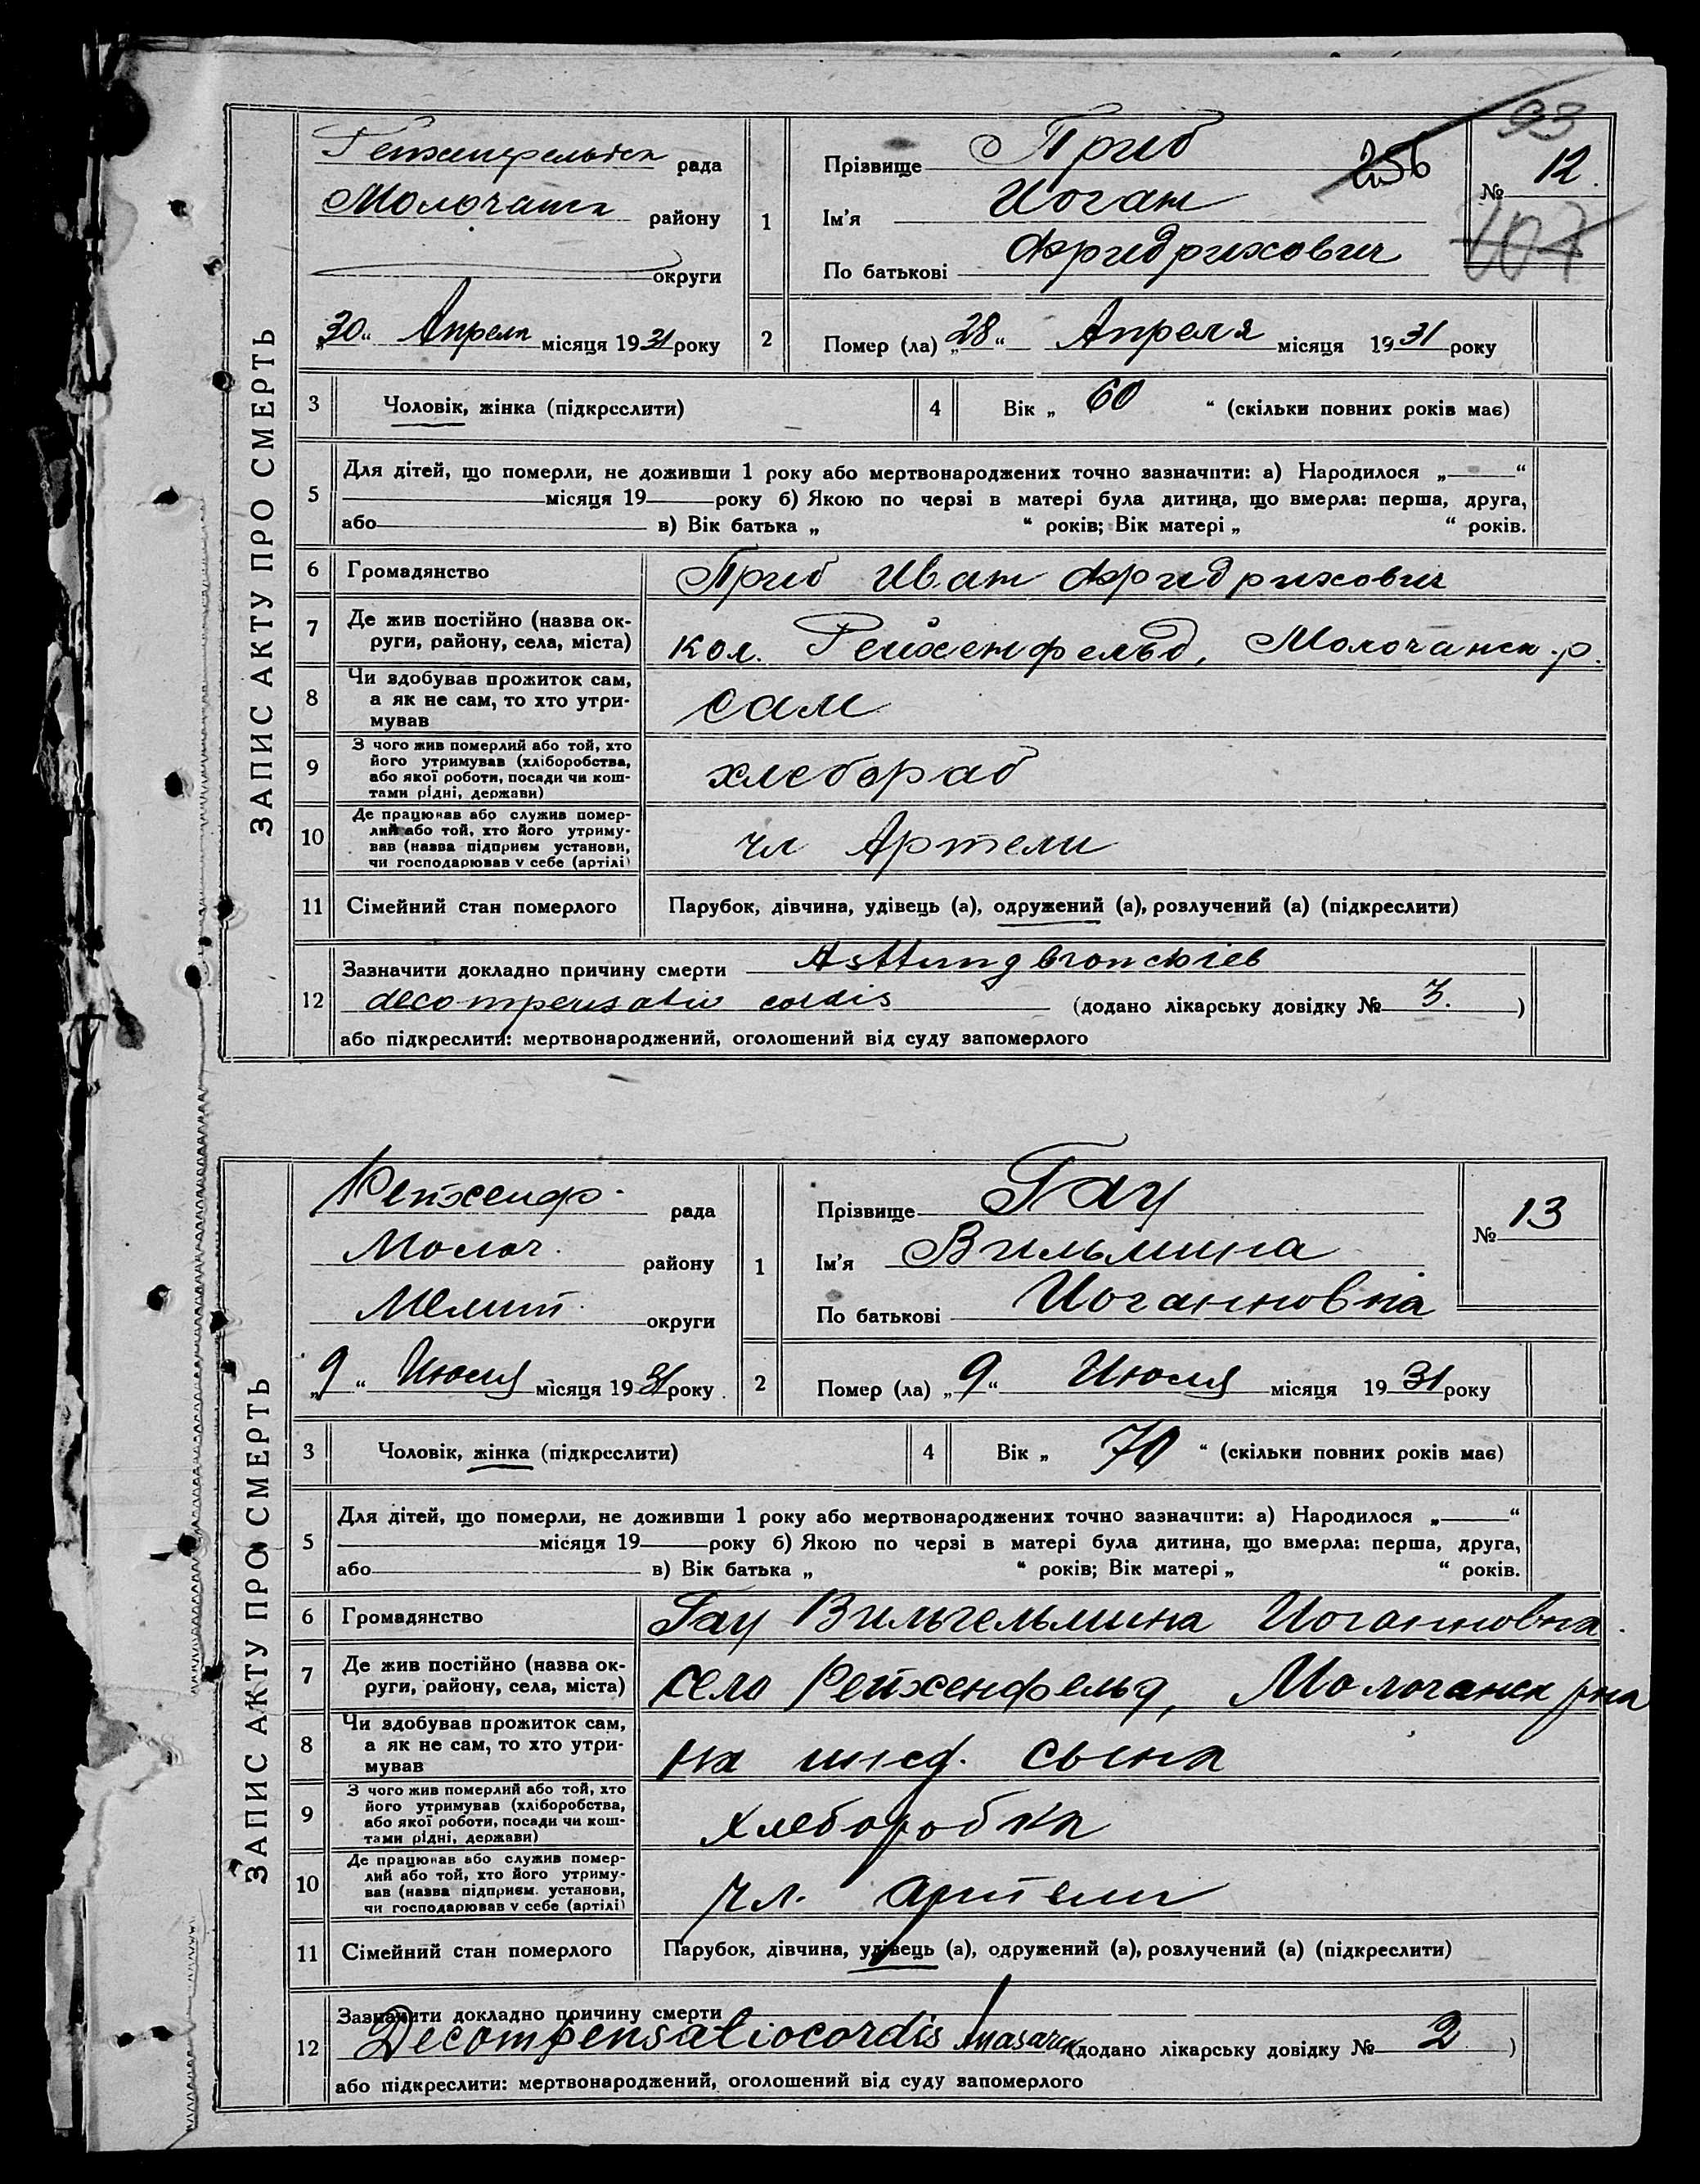 93
ЗАПИС АКТУ ПРО СМЕРТЬ
Рейхенфельдск рада
Молочанск району
округи
„30“ Апреля місяця 1931 року
1
Прізвище Приб
256
Ім'я Иоган
По батькові Фридрихович
№ 12.
107
2
Помер (ла) „28“ Апреля місяця 1931 року
3 Чоловік, жінка (підкреслити)
4 Вік „ 60 “ (скільки повних років має)
5 Для дітей, що померли, не доживши 1 року або мертвонароджених точно зазначити: а) Народилося „ “
місяця 19 року б) Якою по черзі в матері була дитина, що вмерла: перша, друга,
або в) Вік батька „ “ років; Вік матері „ “ років.
6 Громадянство Приб Иван Фридрихович
7 Де жив постійно (назва ок-
руги, району, села, міста) кол. Рейхенфельд, Молочанск. р.
8 Чи здобував прожиток сам,
а як не сам, то хто утри-
мував сам
9 З чого жив померлий або той, хто
його утримував (хліборобства,
або якої роботи, посади чи кош-
тами рідні, держави) хлебораб
10 Де працював або служив помер-
лий або той, хто його утриму-
вав (назва підприєм установи,
чи господарював у себе (артілі) чл Артели
11 Сімейний стан померлого Парубок, дівчина, удівець (а), одружений (а), розлучений (а) (підкреслити)
12 Зазначити докладно причину смерти
decompensatio cordis (додано лікарську довідку № 3. )
або підкреслити: мертвонароджений, оголошений від суду запомерлого
ЗАПИС АКТУ ПРО СМЕРТЬ
Рейхенф. рада
Молоч. району
Мелит. округи
„9“ Июля місяця 1931 року.
1
Прізвище Гау
Ім'я Вильмина
По батькові Иогановна
№ 13
2
Помер (ла) „9“ Июля місяця 1931 року
3 Чоловік, жінка (підкреслити)
4 Вік „ 70 “ (скільки повних років має)
5 Для дітей, що померли, не доживши 1 року або мертвонароджених точно зазначити: а) Народилося „ “
місяця 19 року б) Якою по черзі в матері була дитина, що вмерла: перша, друга,
або в) Вік батька „ “ років; Вік матері „ “ років.
6 Громадянство Гау Вильгельмина Иогановна.
7 Де жив постійно (назва ок-
руги, району, села, міста) село Рейхенфельд, Молочанск рна
8 Чи здобував прожиток сам,
а як не сам, то хто утри-
мував на ижд. сына
9 З чого жив померлий або той, хто
його утримував (хліборобства,
або якої роботи, посади чи кош-
тами рідні, держави) хлеборобка
10 Де працював або служив помер-
лий або той, хто його утриму-
вав (назва підприєм. установи,
чи господарював у себе (артілі) чл. артели
11 Сімейний стан померлого Парубок, дівчина, удівець (а), одружений (а), розлучений (а) (підкреслити)
12 Зазначити докладно причину смерти
Decompensatiocordis Anasarca (додано лікарську довідку № 2 )
або підкреслити: мертвонароджений, оголошений від суду запомерлого